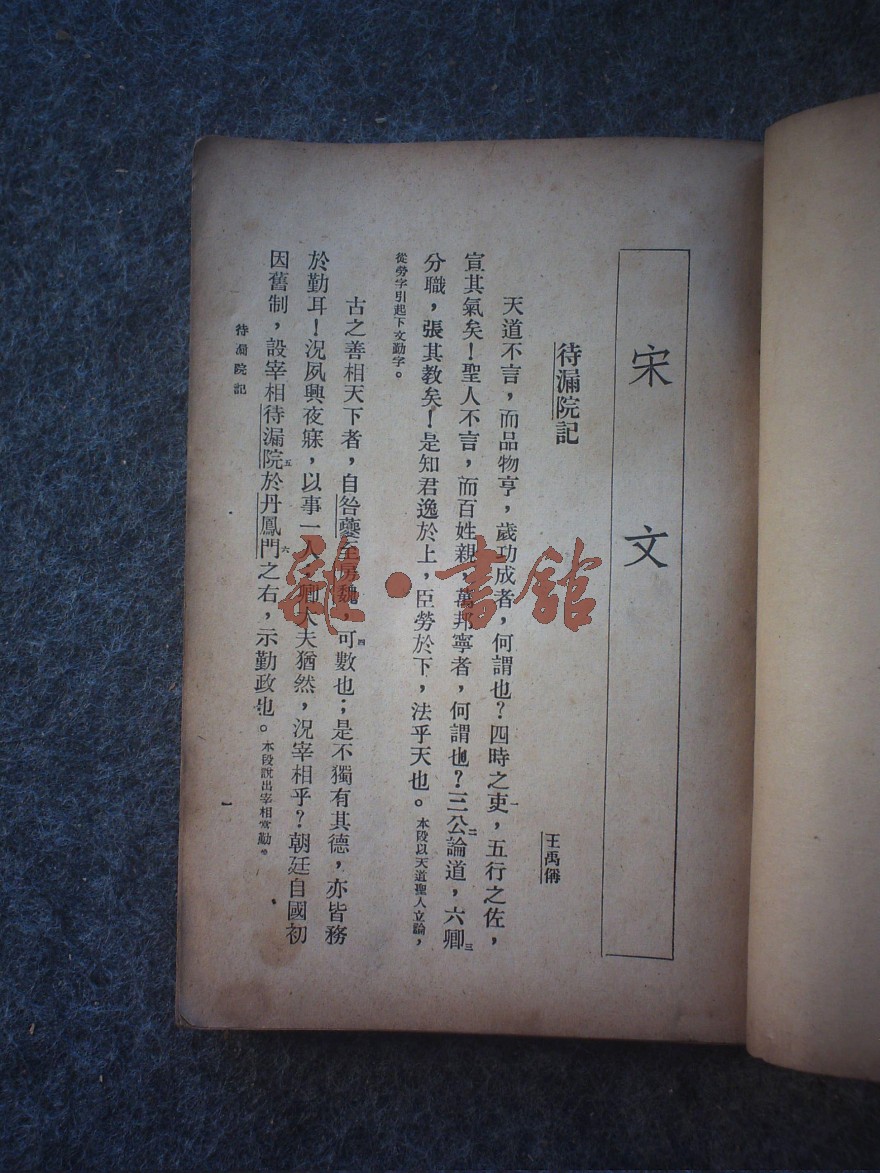 宋文
待漏院記
王禹偁
天道不言，而品物亨，歲功成者，何謂也？四時之吏，五行之佐，
宣其氣矣！聖人不言，而百姓親，萬邦寧者，何謂也？三公二論道，六卿三
分職，張其教矣！是知君逸於上，臣勞於下，法乎天也。本段以天道聖人立論，
從勞字引起下文勤字。
古之善相天下者，自咎夔至房魏，可四數也；是不獨有其德，亦皆務
於勤耳！況夙興夜寐，以事一人，卿大夫猶然，況宰相乎？朝廷自國初
因舊制，設宰相待漏院五於丹鳳門六之右，示勤政也。本段說出宰相當勤。
待漏院記
一
雜·書館